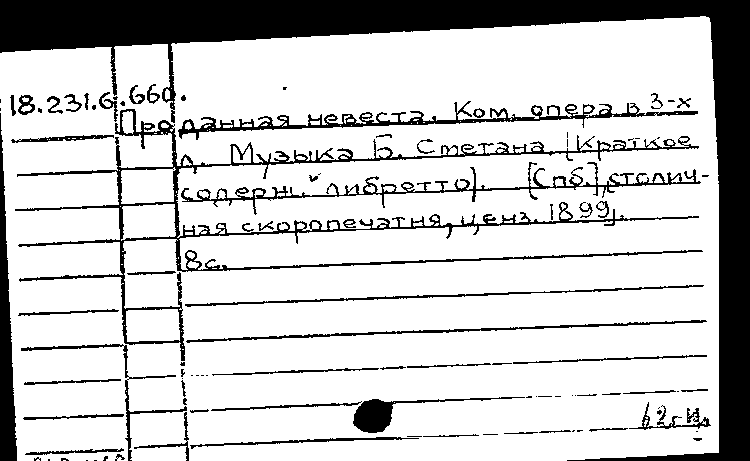 18.231.6.660.
Проданная невеста. Ком. опера в 3-х
д. Музыка Б. Сметана. [Краткое
содерж. либретто]. [Спб.], столич-
ная скоропечатня, ценз. 1899].
8с.